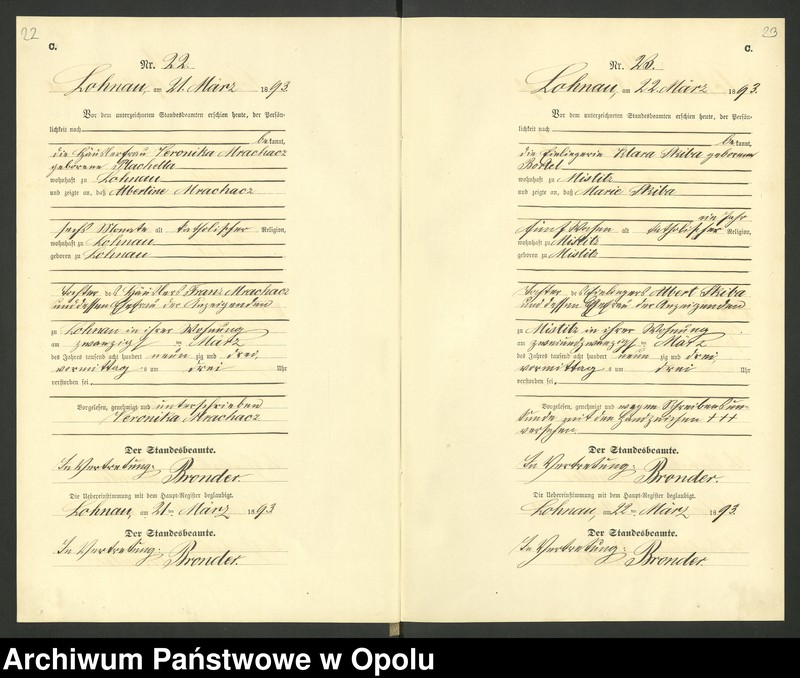 22
C.
Nr. 22.
Lohnau, am 21. März 1893.
Vor dem unterzeichneten Standesbeamten erschien heute, der Persön-
lichkeit nach
bekannt,
die Häuslerfrau Veronika Mrachacz
geborene Machetta
wohnhaft zu Lohnau
und zeigte an, daß Albertine Mrachacz
sechs Monate alt katholischer Religion,
wohnhaft zu Lohnau
geboren zu Lohnau
Tochter des Häuslers Franz Mrachacz
und dessen Ehefrau der Anzeigenden
zu Lohnau in ihrer Wohnung
am zwanzigsten März
des Jahres tausend acht hundert neunzig und drei,
vormittags um drei Uhr
verstorben sei.
Vorgelesen, genehmigt und unterschrieben
Veronika Mrachacz
Der Standesbeamte.
In Vertretung:
Bronder.
Die Uebereinstimmung mit dem Haupt-Register beglaubigt.
Lohnau, am 21ten März 1893
Der Standesbeamte.
In Vertretung:
Bronder.
23
C.
Nr. 23.
Lohnau, am 22. März 1893.
Vor dem unterzeichneten Standesbeamten erschien heute, der Persön-
lichkeit nach
bekannt,
die Einliegerin Klara Skiba geborene
Bortel
wohnhaft zu Mistitz
und zeigte an, daß Marie Skiba
ein Jahr
fünf Wochen alt katholischer Religion,
wohnhaft zu Mistitz
geboren zu Mistitz
Tochter des Einliegers Albert Skiba
und dessen Ehefrau der Anzeigenden
zu Mistitz in ihrer Wohnung
am zweiundzwanzigsten März
des Jahres tausend acht hundert neunzig und drei
vormittags um drei Uhr
verstorben sei.
Vorgelesen, genehmigt und wegen Schreibensun-
kunde mit den Handzeichen +++
versehen.
Der Standesbeamte.
In Vertretung:
Bronder.
Die Uebereinstimmung mit dem Haupt-Register beglaubigt.
Lohnau, am 22ten März 1893.
Der Standesbeamte.
In Vertretung:
Bronder.
Archiwum Państwowe w Opolu